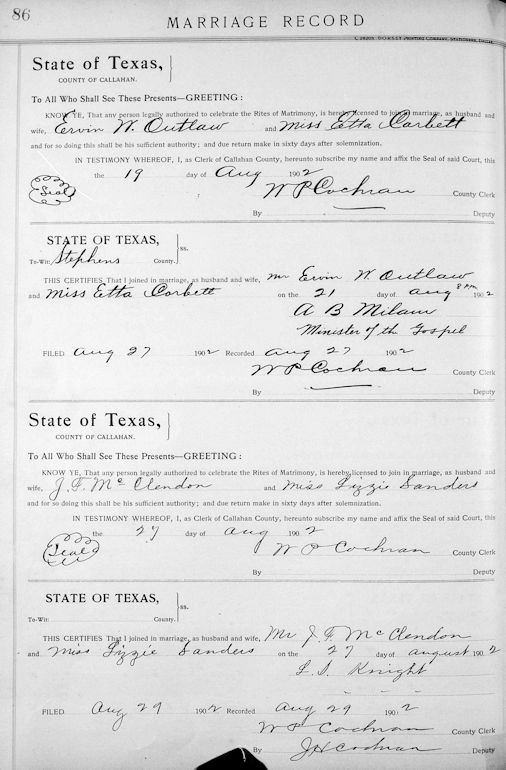 86
MARRIAGE RECORD
C 28205 DORSEY PRINTING COMPANY, STATIONERS, DALLAS
State of Texas,
COUNTY OF CALLAHAN.
To All Who Shall See These Presents—GREETING:
KNOW YE, That any person legally authorized to celebrate the Rites of Matrimony, is hereby licensed to join in marriage, as husband and
wife, Ervin W. Outlaw and Miss Etta Corbett
and for so doing this shall be his sufficient authority; and due return make in sixty days after solemnization.
IN TESTIMONY WHEREOF, I, as Clerk of Callahan County, hereunto subscribe my name and affix the Seal of said Court, this
Seal the 19 day of Aug 1902
W P Cochran County Clerk
By Deputy
STATE OF TEXAS,
ss.
To-Wit: Stephens County.
THIS CERTIFIES That I joined in marriage, as husband and wife, Mr Ervin W. Outlaw
and Miss Etta Corbett on the 21 day of Aug 8 PM 1902
A B Milam
Minister of the Gospel
FILED Aug 27 1902 Recorded Aug 27 1902
W P Cochran County Clerk
By Deputy
State of Texas,
COUNTY OF CALLAHAN.
To All Who Shall See These Presents—GREETING:
KNOW YE, That any person legally authorized to celebrate the Rites of Matrimony, is hereby licensed to join in marriage, as husband and
wife, J. F. McClendon and Miss Lizzie Sanders
and for so doing this shall be his sufficient authority; and due return make in sixty days after solemnization.
IN TESTIMONY WHEREOF, I, as Clerk of Callahan County, hereunto subscribe my name and affix the Seal of said Court, this
Seal the 27 day of Aug 1902
W P Cochran County Clerk
By Deputy
STATE OF TEXAS,
ss.
To-Wit: County.
THIS CERTIFIES That I joined in marriage, as husband and wife, Mr J. F. McClendon
and Miss Lizzie Sanders on the 27 day of August 1902
L. S. Knight
FILED Aug 29 1902 Recorded Aug 29 1902
W P Cochran County Clerk
By J H Cochran Deputy